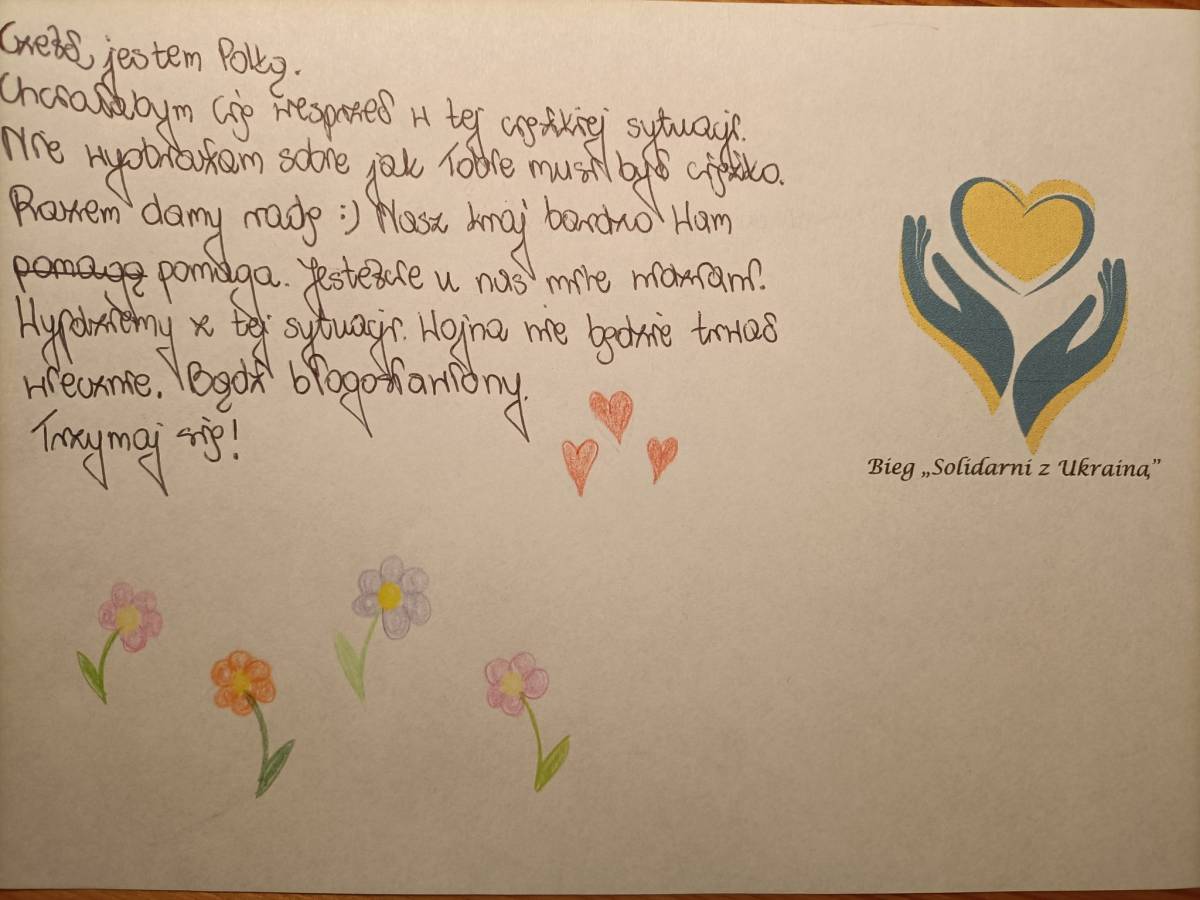 Cześć, jestem Polką.
Chciałabym Cię wesprzeć w tej ciężkiej sytuacji.
Nie wyobrażam sobie jak Tobie musi być ciężko.
Razem damy radę :) Nasz kraj bardzo Wam
pomagą pomaga. Jesteście u nas mile widziani.
Wyjdziemy z tej sytuacji. Wojna nie będzie trwać
wiecznie. Bądź błogosławiony.
Trzymaj się!
Bieg „Solidarni z Ukrainą”